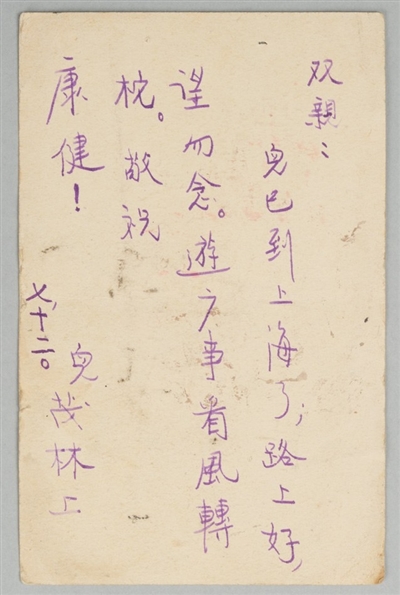 双親：
兒已到上海了，路上好，
望勿念。遊户事看風轉
柁。敬祝
康健！
兒茂林上
七，十二。